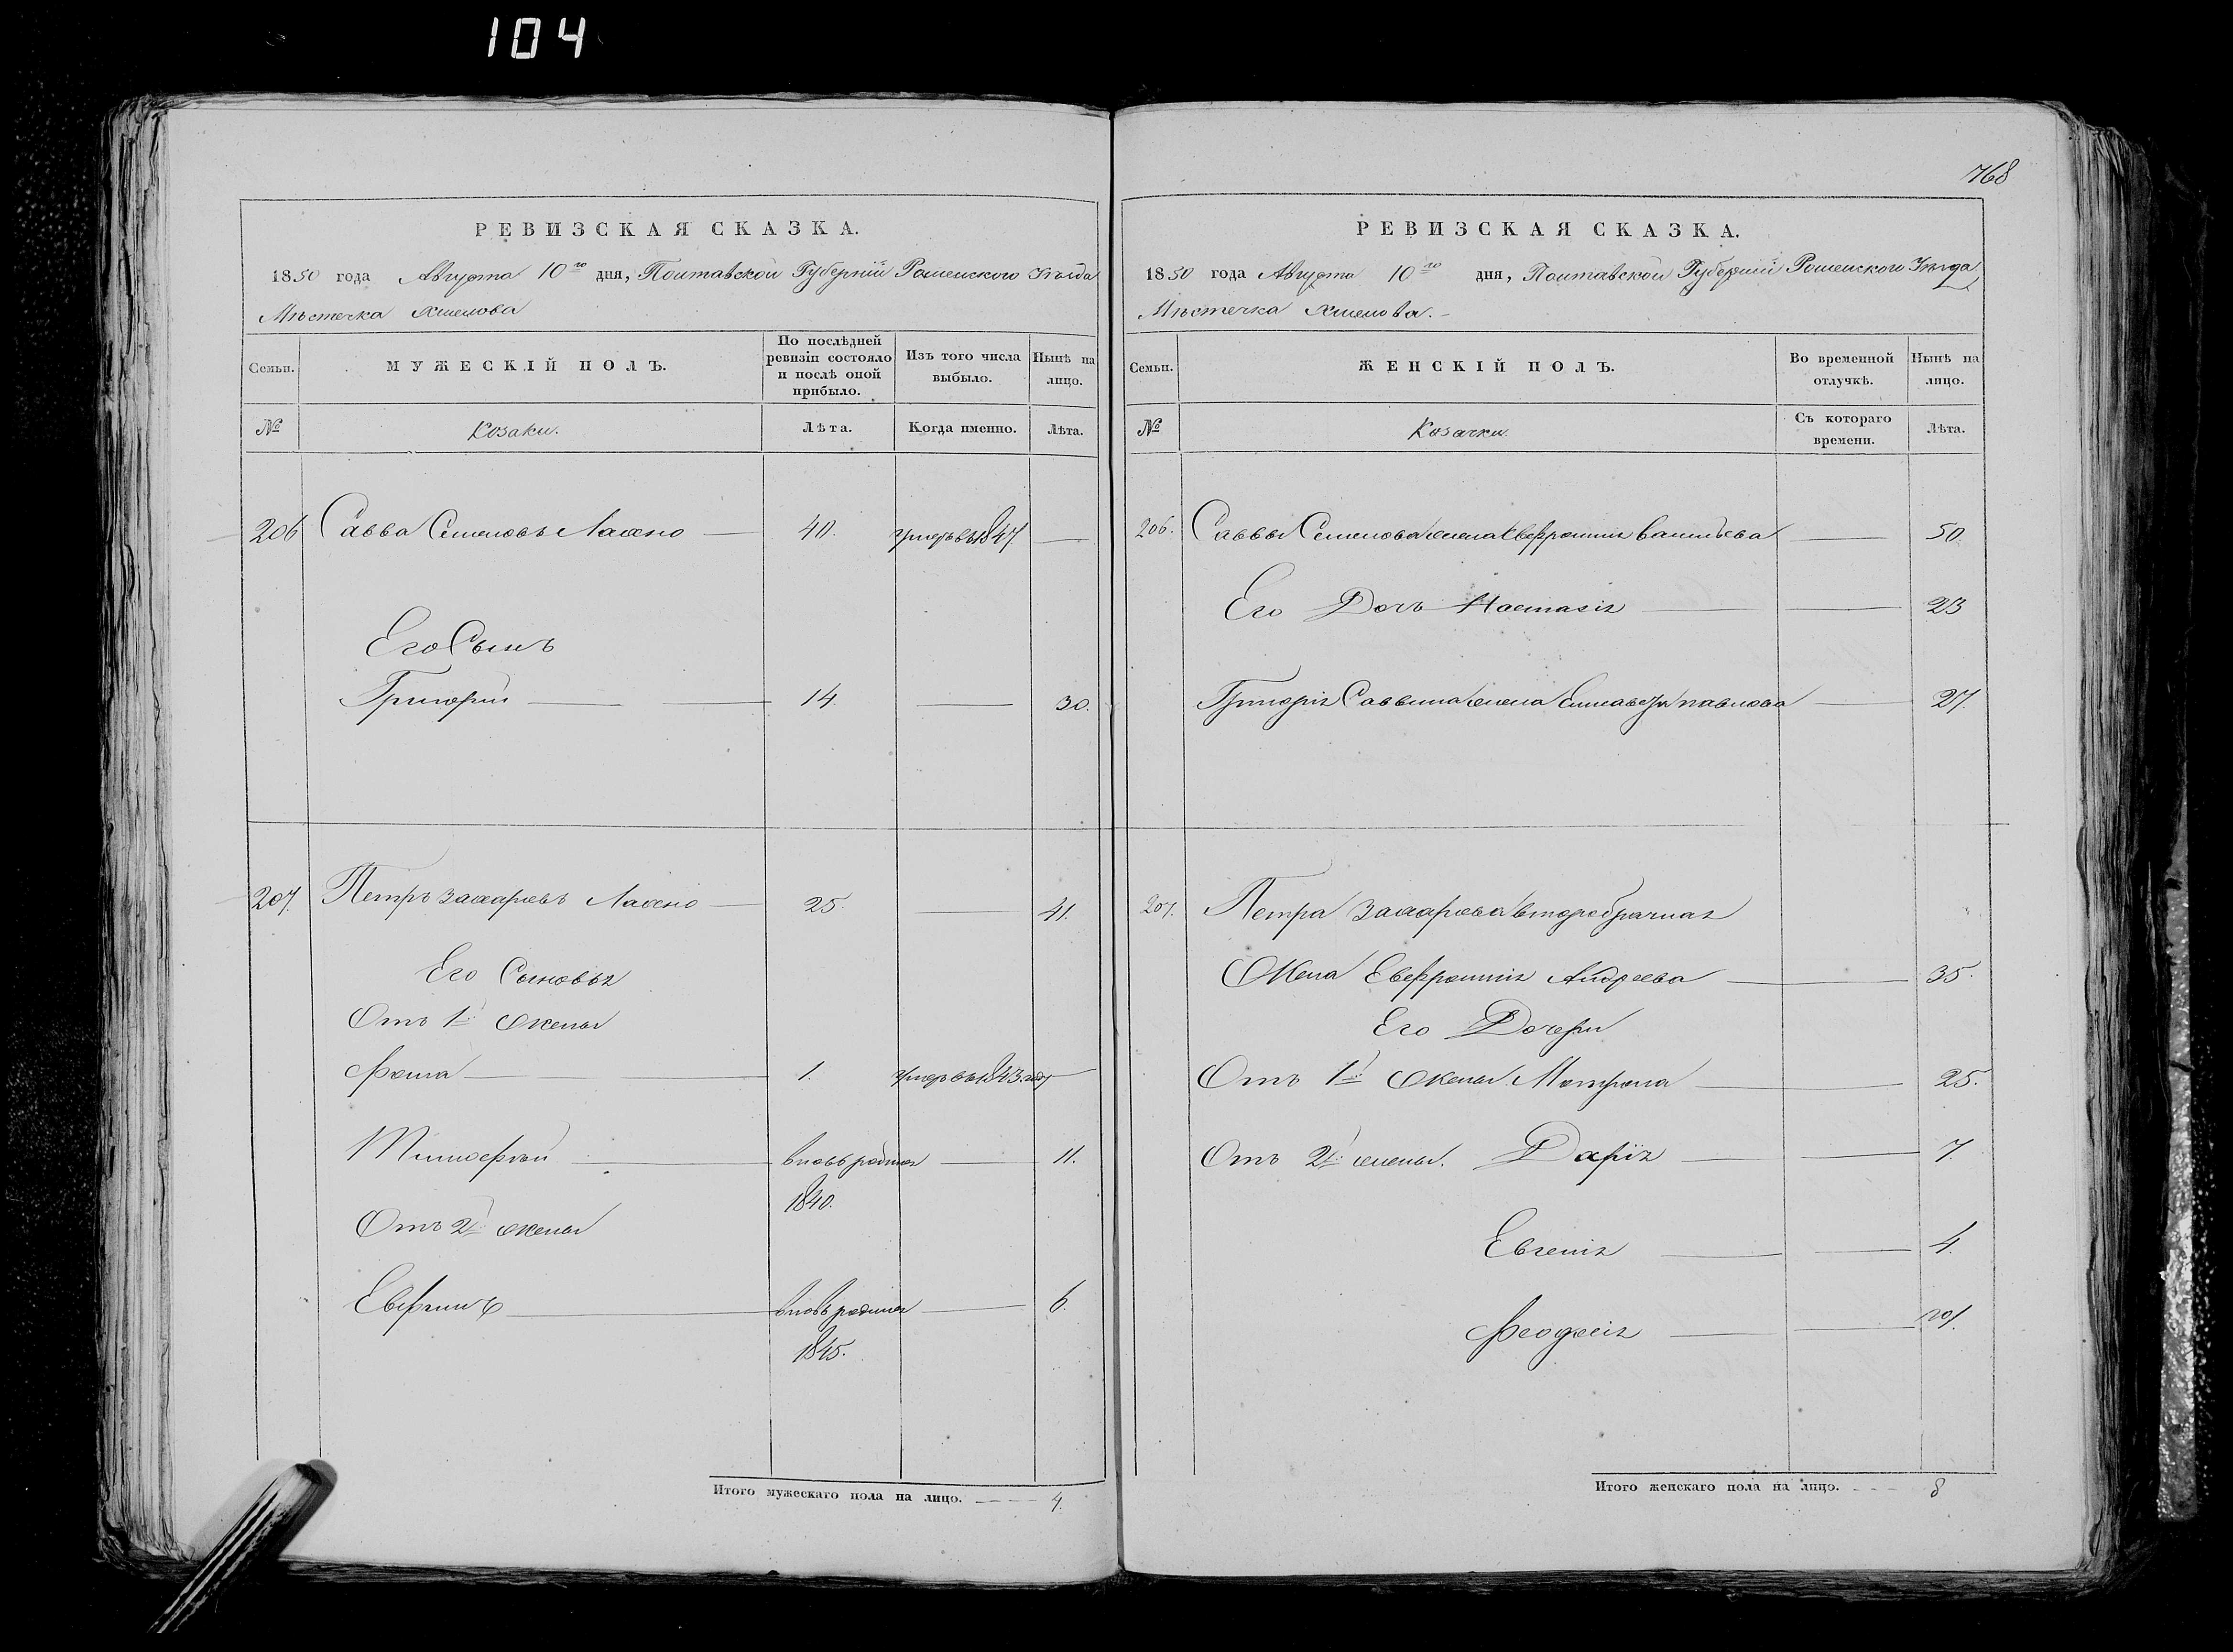 104
768
РЕВИЗСКАЯ СКАЗКА.
1850 года Августа 10го дня, Полтавской Губернии Роменского Уѣзда
Мѣстечка Хмелова
Семьи. МУЖЕСКІЙ ПОЛЪ. По послѣдней ревизіи состояло и послѣ оной прибыло. Изъ того числа выбыло. Нынѣ на лицо.
№ Козаки. Лѣта. Когда именно. Лѣта.
206 Савва Семеновъ Лахно 40. умеръ въ 1847. —
Его Сынъ
Григорий 14. — 30.
207. Петръ Захаріевъ Лахно 25. — 41.
Его Сыновья
Отъ 1й Жены
Фома 1. умеръ въ 1843. году
Тимофѣй вновь родился 11.
1840.
Отъ 2й жены
вновь родился 6.
1845.
Итого мужескаго пола на лицо. 4.
РЕВИЗСКАЯ СКАЗКА.
1850 года Августа 10го дня, Полтавской Губернии Роменского Уѣзда
Мѣстечка Хмелова.
Семьи. ЖЕНСКІЙ ПОЛЪ. Во временной отлучкѣ. Нынѣ на лицо.
№ Козачки. Съ котораго времени. Лѣта.
206. Саввы Семенова жена Евфросинія Васильева — 50
Его Дочь Настасія — 23
Григорія Саввина жена Елисавета Павлова — 27.
207. Петра Захаріева второбрачная
Жена Евфросинія Андреева — 35.
Его Дочери
Отъ 1й Жены Мотрона — 25.
Отъ 2й жены. Дарія — 7.
Евгенія — 4.
Феодосія —
Итого женскаго пола на лицо. 8